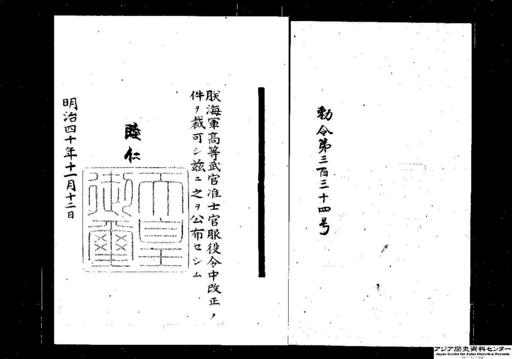 勅令第三百三十四号
朕海軍高等武官准士官服役令中改正ノ
件ヲ裁可シ玆ニ之ヲ公布セシム
睦仁
天皇御璽
明治四十年十一月十二日
アジア歴史資料センター
Japan Center for Asian Historical Records